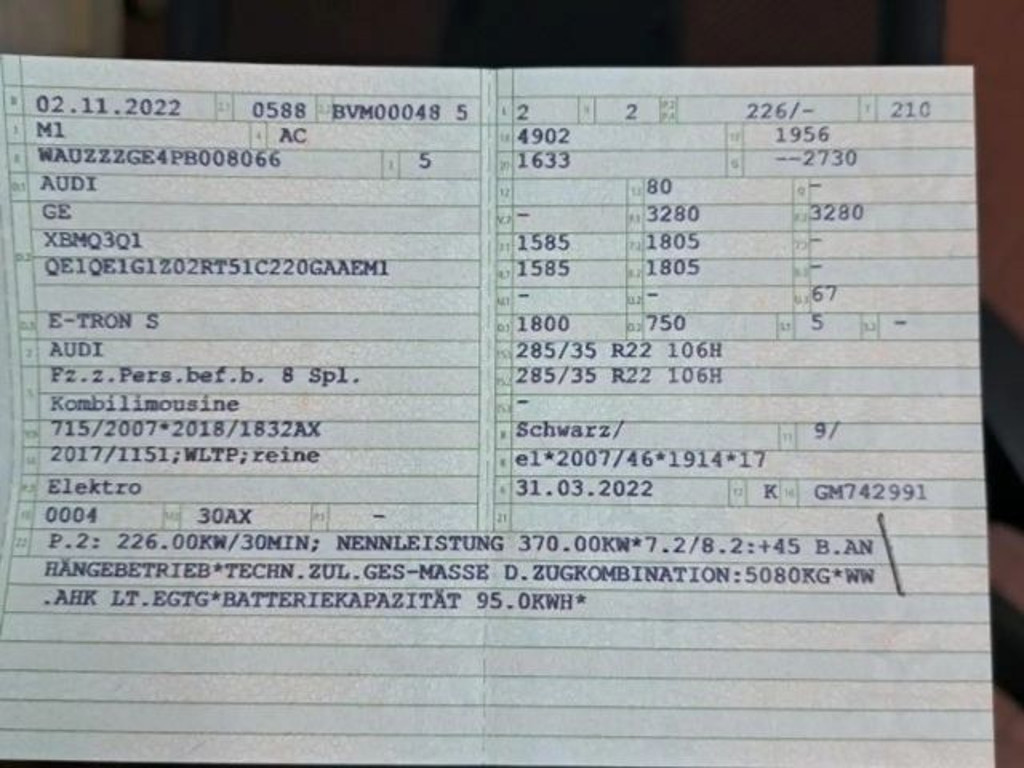 02.11.2022 0588 BVM00048 5
M1 AC
WAUZZZGE4PB008066 5
AUDI
GE
XBMQ3Q1
QE1QE1G1Z02RT51C220GAAEM1
E-TRON S
AUDI
Fz.z.Pers.bef.b. 8 Spl.
Kombilimousine
715/2007*2018/1832AX
2017/1151;WLTP;reine
Elektro
0004 30AX -
2 2 226/- 210
4902 1956
1633 --2730
80 -
- 3280 3280
1585 1805 -
1585 1805 -
- - 67
1800 750 5 -
285/35 R22 106H
285/35 R22 106H
-
Schwarz/ 9/
e1*2007/46*1914*17
31.03.2022 K GM742991
P.2: 226.00KW/30MIN; NENNLEISTUNG 370.00KW*7.2/8.2:+45 B.AN
HÄNGEBETRIEB*TECHN.ZUL.GES-MASSE D.ZUGKOMBINATION:5080KG*WW
.AHK LT.EGTG*BATTERIEKAPAZITÄT 95.0KWH*